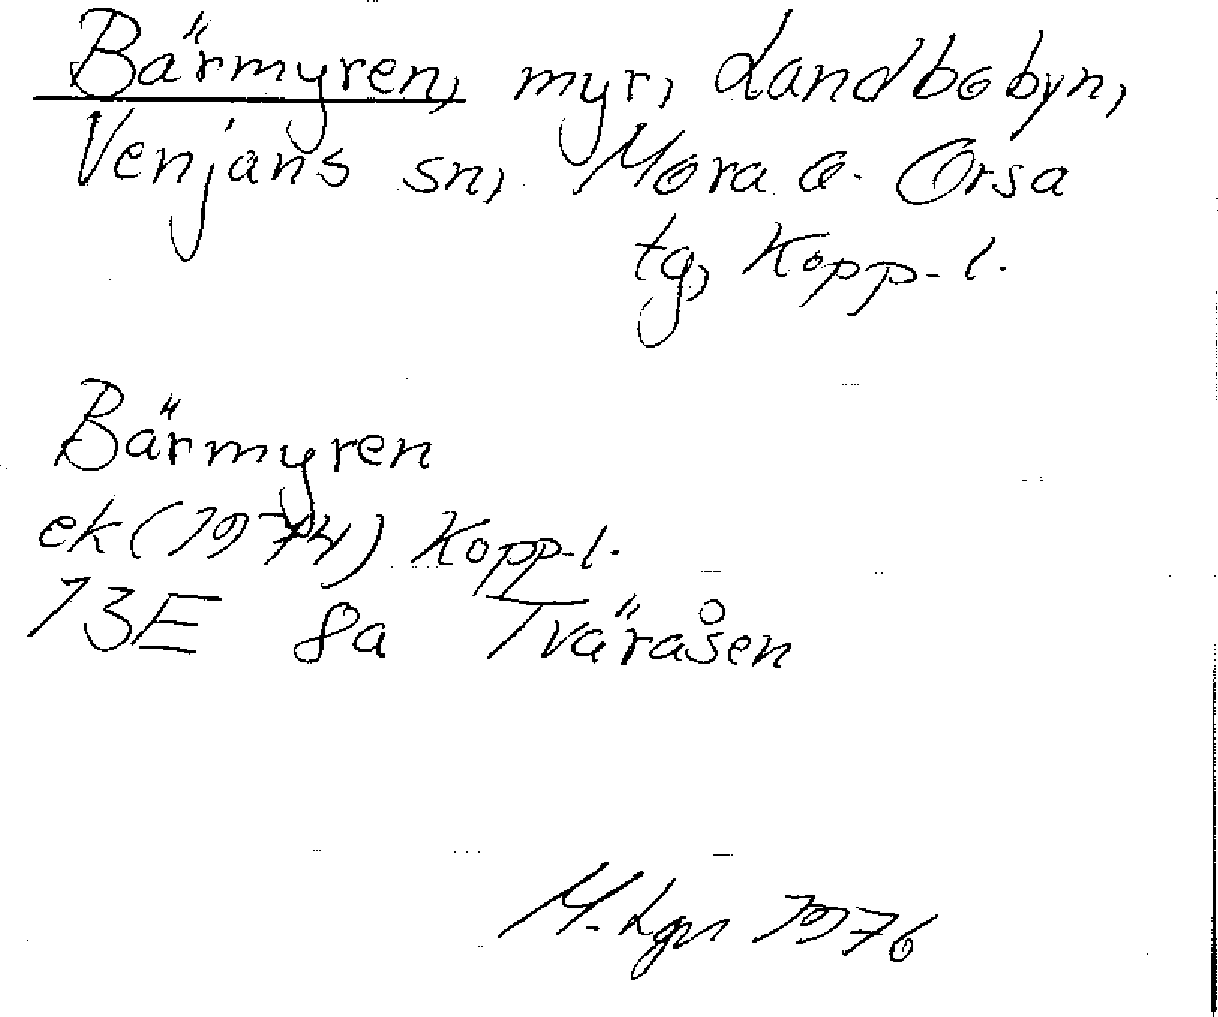 Bärmyren, myr, Landbobyn,
Venjans sn, Mora o. Orsa
tg, Kopp-l.
Bärmyren
ek (1974) Kopp-l.
13E 8a Tväråsen
M. Lgn 1976